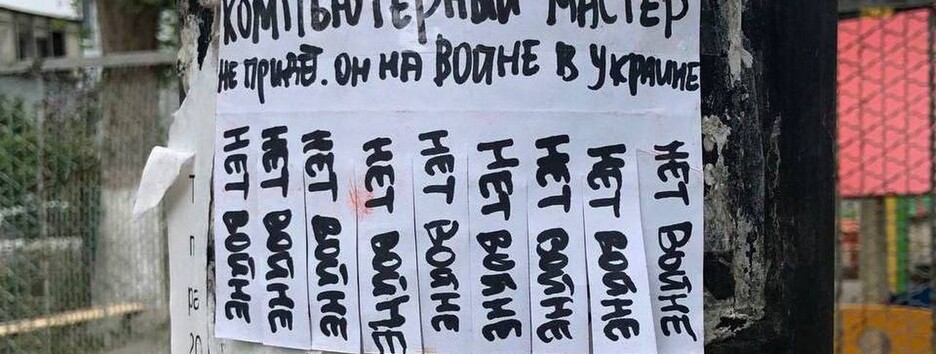 КОМПЬЮТЕРНЫЙ МАСТЕР
НЕ ПРИДЁТ. ОН НА ВОЙНЕ В УКРАИНЕ
НЕТ ВОЙНЕ
НЕТ ВОЙНЕ
НЕТ ВОЙНЕ
НЕТ ВОЙНЕ
НЕТ ВОЙНЕ
НЕТ ВОЙНЕ
НЕТ ВОЙНЕ
НЕТ ВОЙНЕ
НЕТ ВОЙНЕ